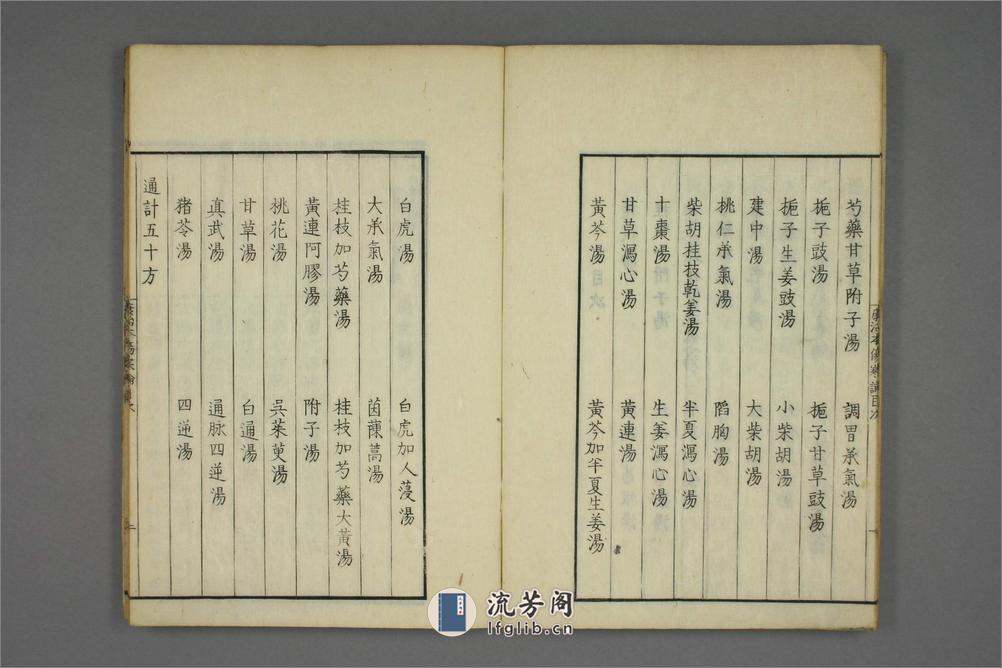 芍藥甘草附子湯　調胃承氣湯
梔子豉湯　梔子甘草豉湯
梔子生姜豉湯　小柴胡湯
建中湯　大柴胡湯
桃仁承氣湯　陷胸湯
柴胡桂枝乾姜湯　半夏瀉心湯
十棗湯　生姜瀉心湯
甘草瀉心湯　黃連湯
黃芩湯　黃芩加半夏生姜湯
白虎湯　白虎加人薓湯
大承氣湯　茵蔯蒿湯
桂枝加芍藥湯　桂枝加芍藥大黃湯
黃連阿膠湯　附子湯
桃花湯　吳茱萸湯
甘草湯　白通湯
真武湯　通脉四逆湯
猪苓湯　四逆湯
通計五十方
流芳阁
lfglib.cn